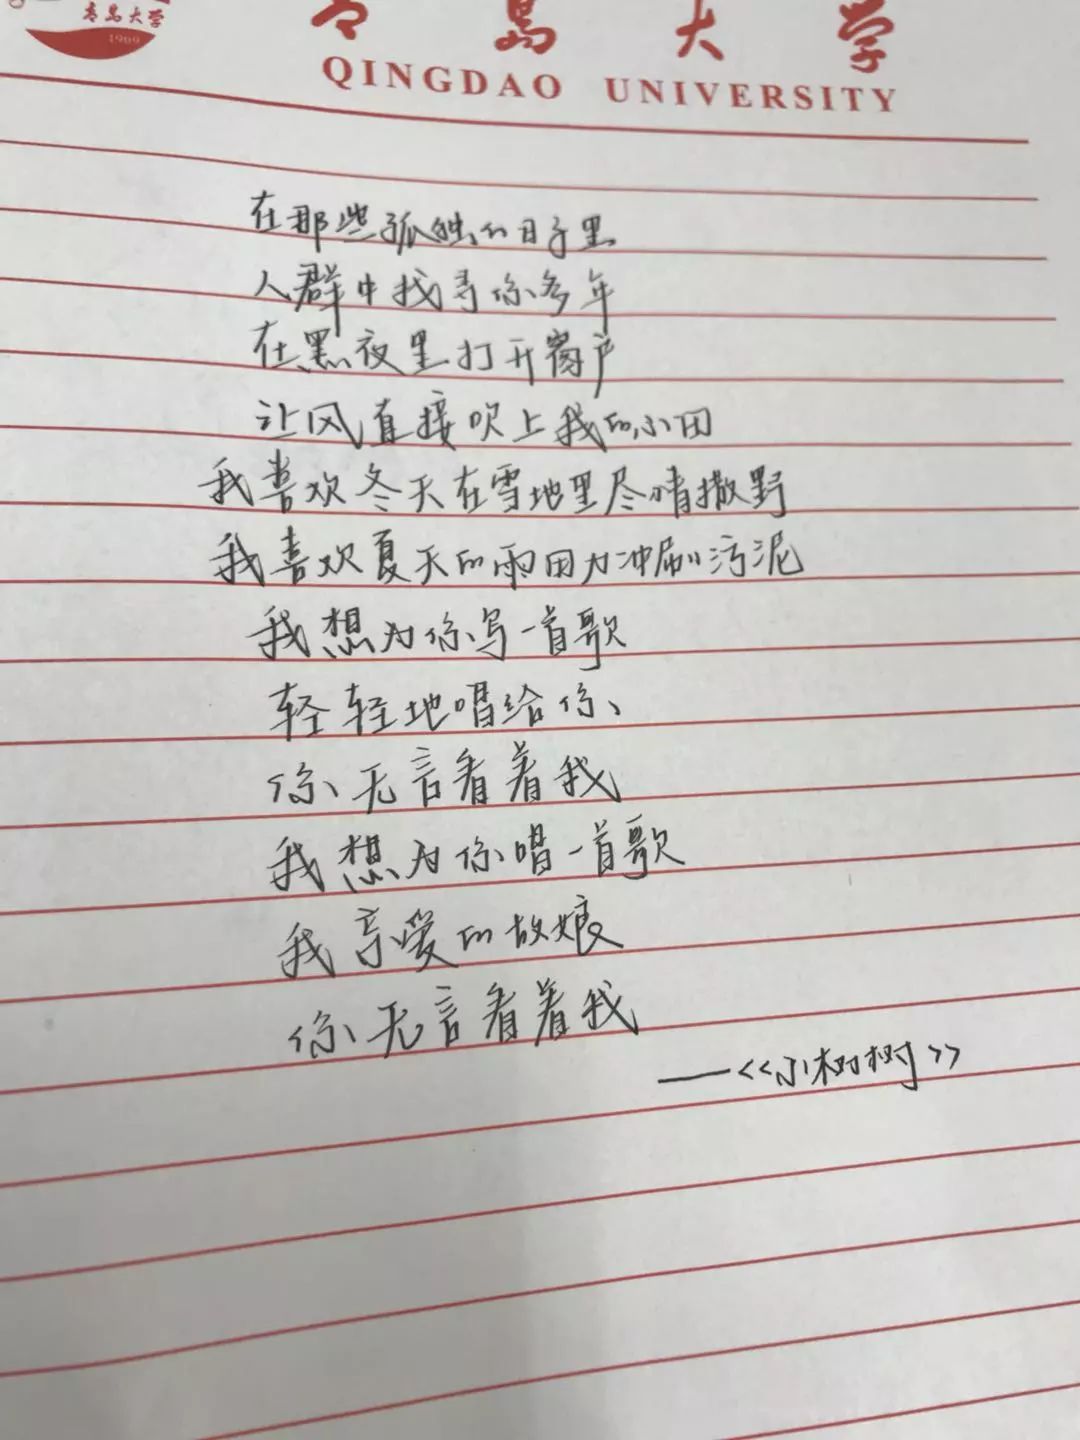 青岛大学
1909
青岛大学
QINGDAO UNIVERSITY
在那些孤独的日子里
人群中找寻你多年
在黑夜里打开窗户
让风直接吹上我的小田
我喜欢冬天在雪地里尽情撒野
我喜欢夏天的雨用力冲刷污泥
我想为你写一首歌
轻轻地唱给你、
你无言看着我
我想为你唱一首歌
我亲爱的故娘
你无言看着我
——<<小树树>>